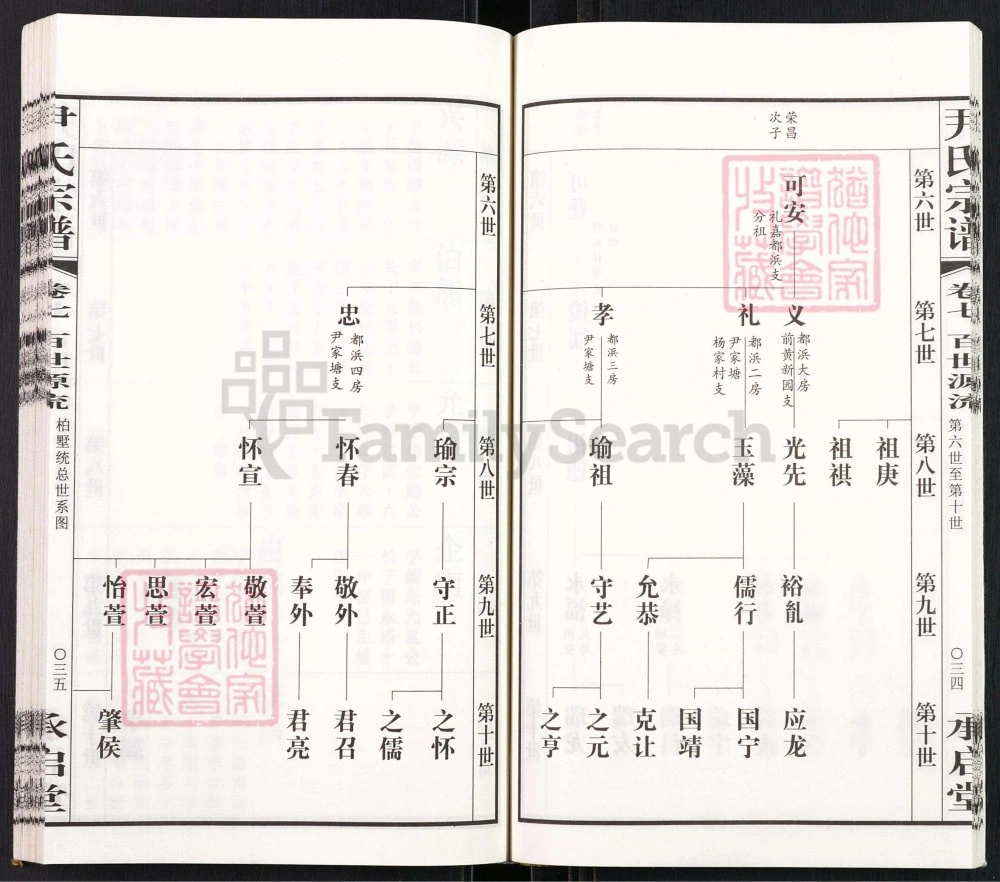 尹氏宗谱
卷七 百世源流
第六世至第十世
〇三四
承启堂
第六世
第七世
第八世
第九世
第十世
荣昌
次子
可安
礼嘉都浜支
分祖
义
都浜大房
前黄新园支
礼
都浜二房
尹家塘
杨家村支
孝
都浜三房
尹家塘支
祖庚
祖祺
光先
玉藻
瑜祖
裕亂
儒行
允恭
守艺
应龙
国宁
国靖
克让
之元
之亨
第六世
第七世
第八世
第九世
第十世
忠
都浜四房
尹家塘支
瑜宗
怀春
怀宣
守正
敬外
奉外
敬萱
宏萱
思萱
怡萱
之怀
之儒
君召
君亮
肇侯
尹氏宗谱
卷七 百世源流
柏墅统总世系图
〇三五
承启堂
FamilySearch